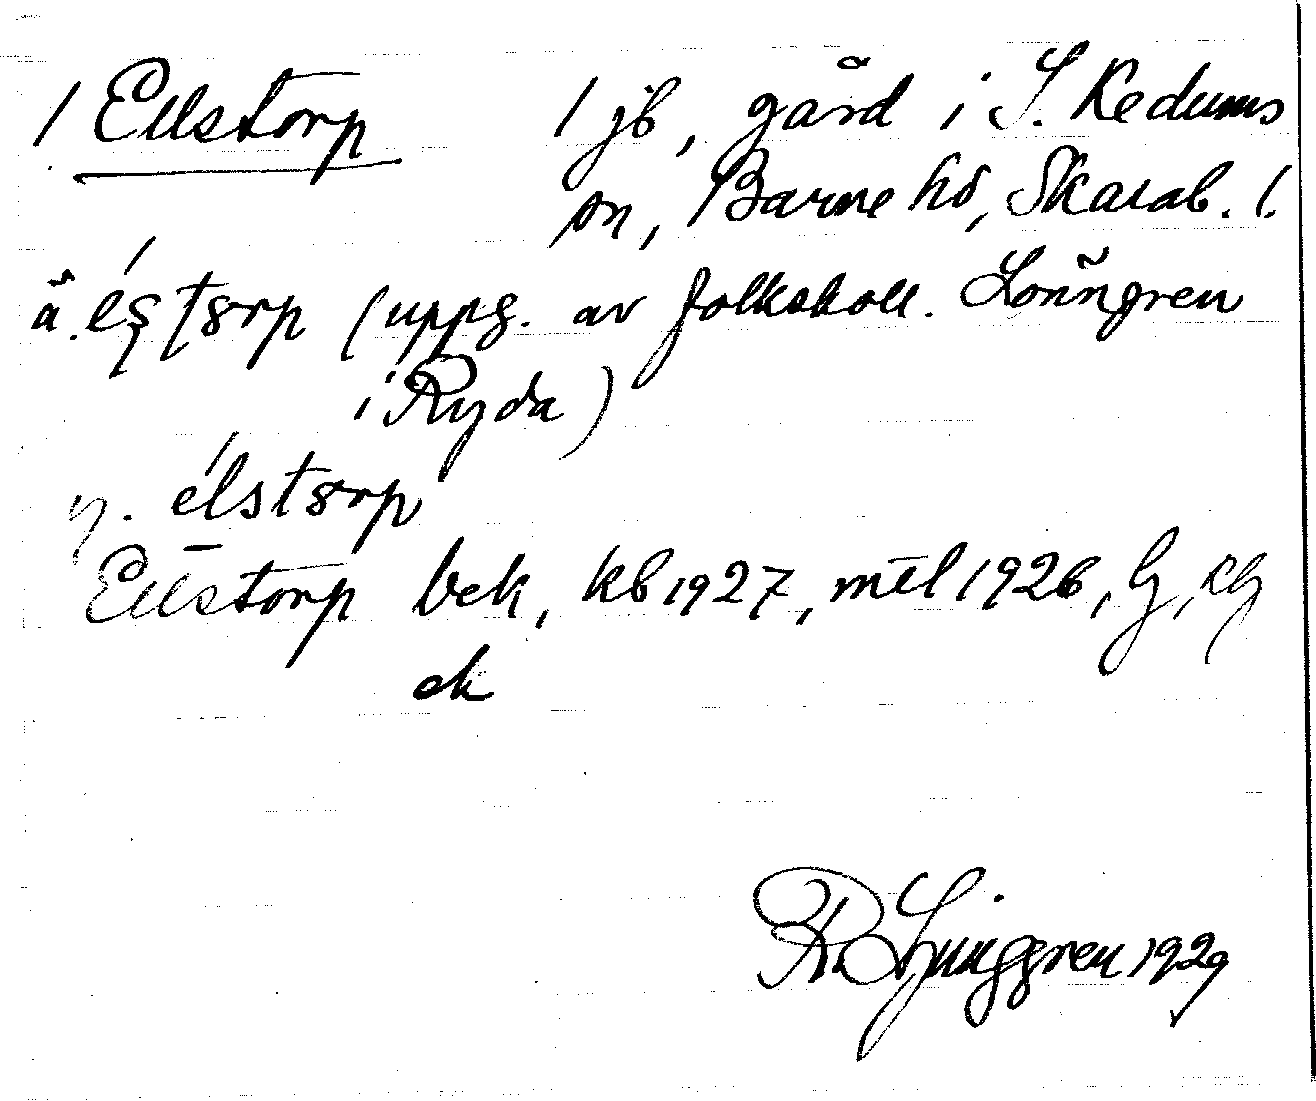 / Ellstorp / jb, gård i S. Kedums
sn, Barne hd, Skarab. l.
ä. (uppg. av folkskoll. Lönngren
i Ryda)
y. élstorp
Ellstorp bek, kb 1927, mtl 1926, G,
ek
R. Ljunggren 1929